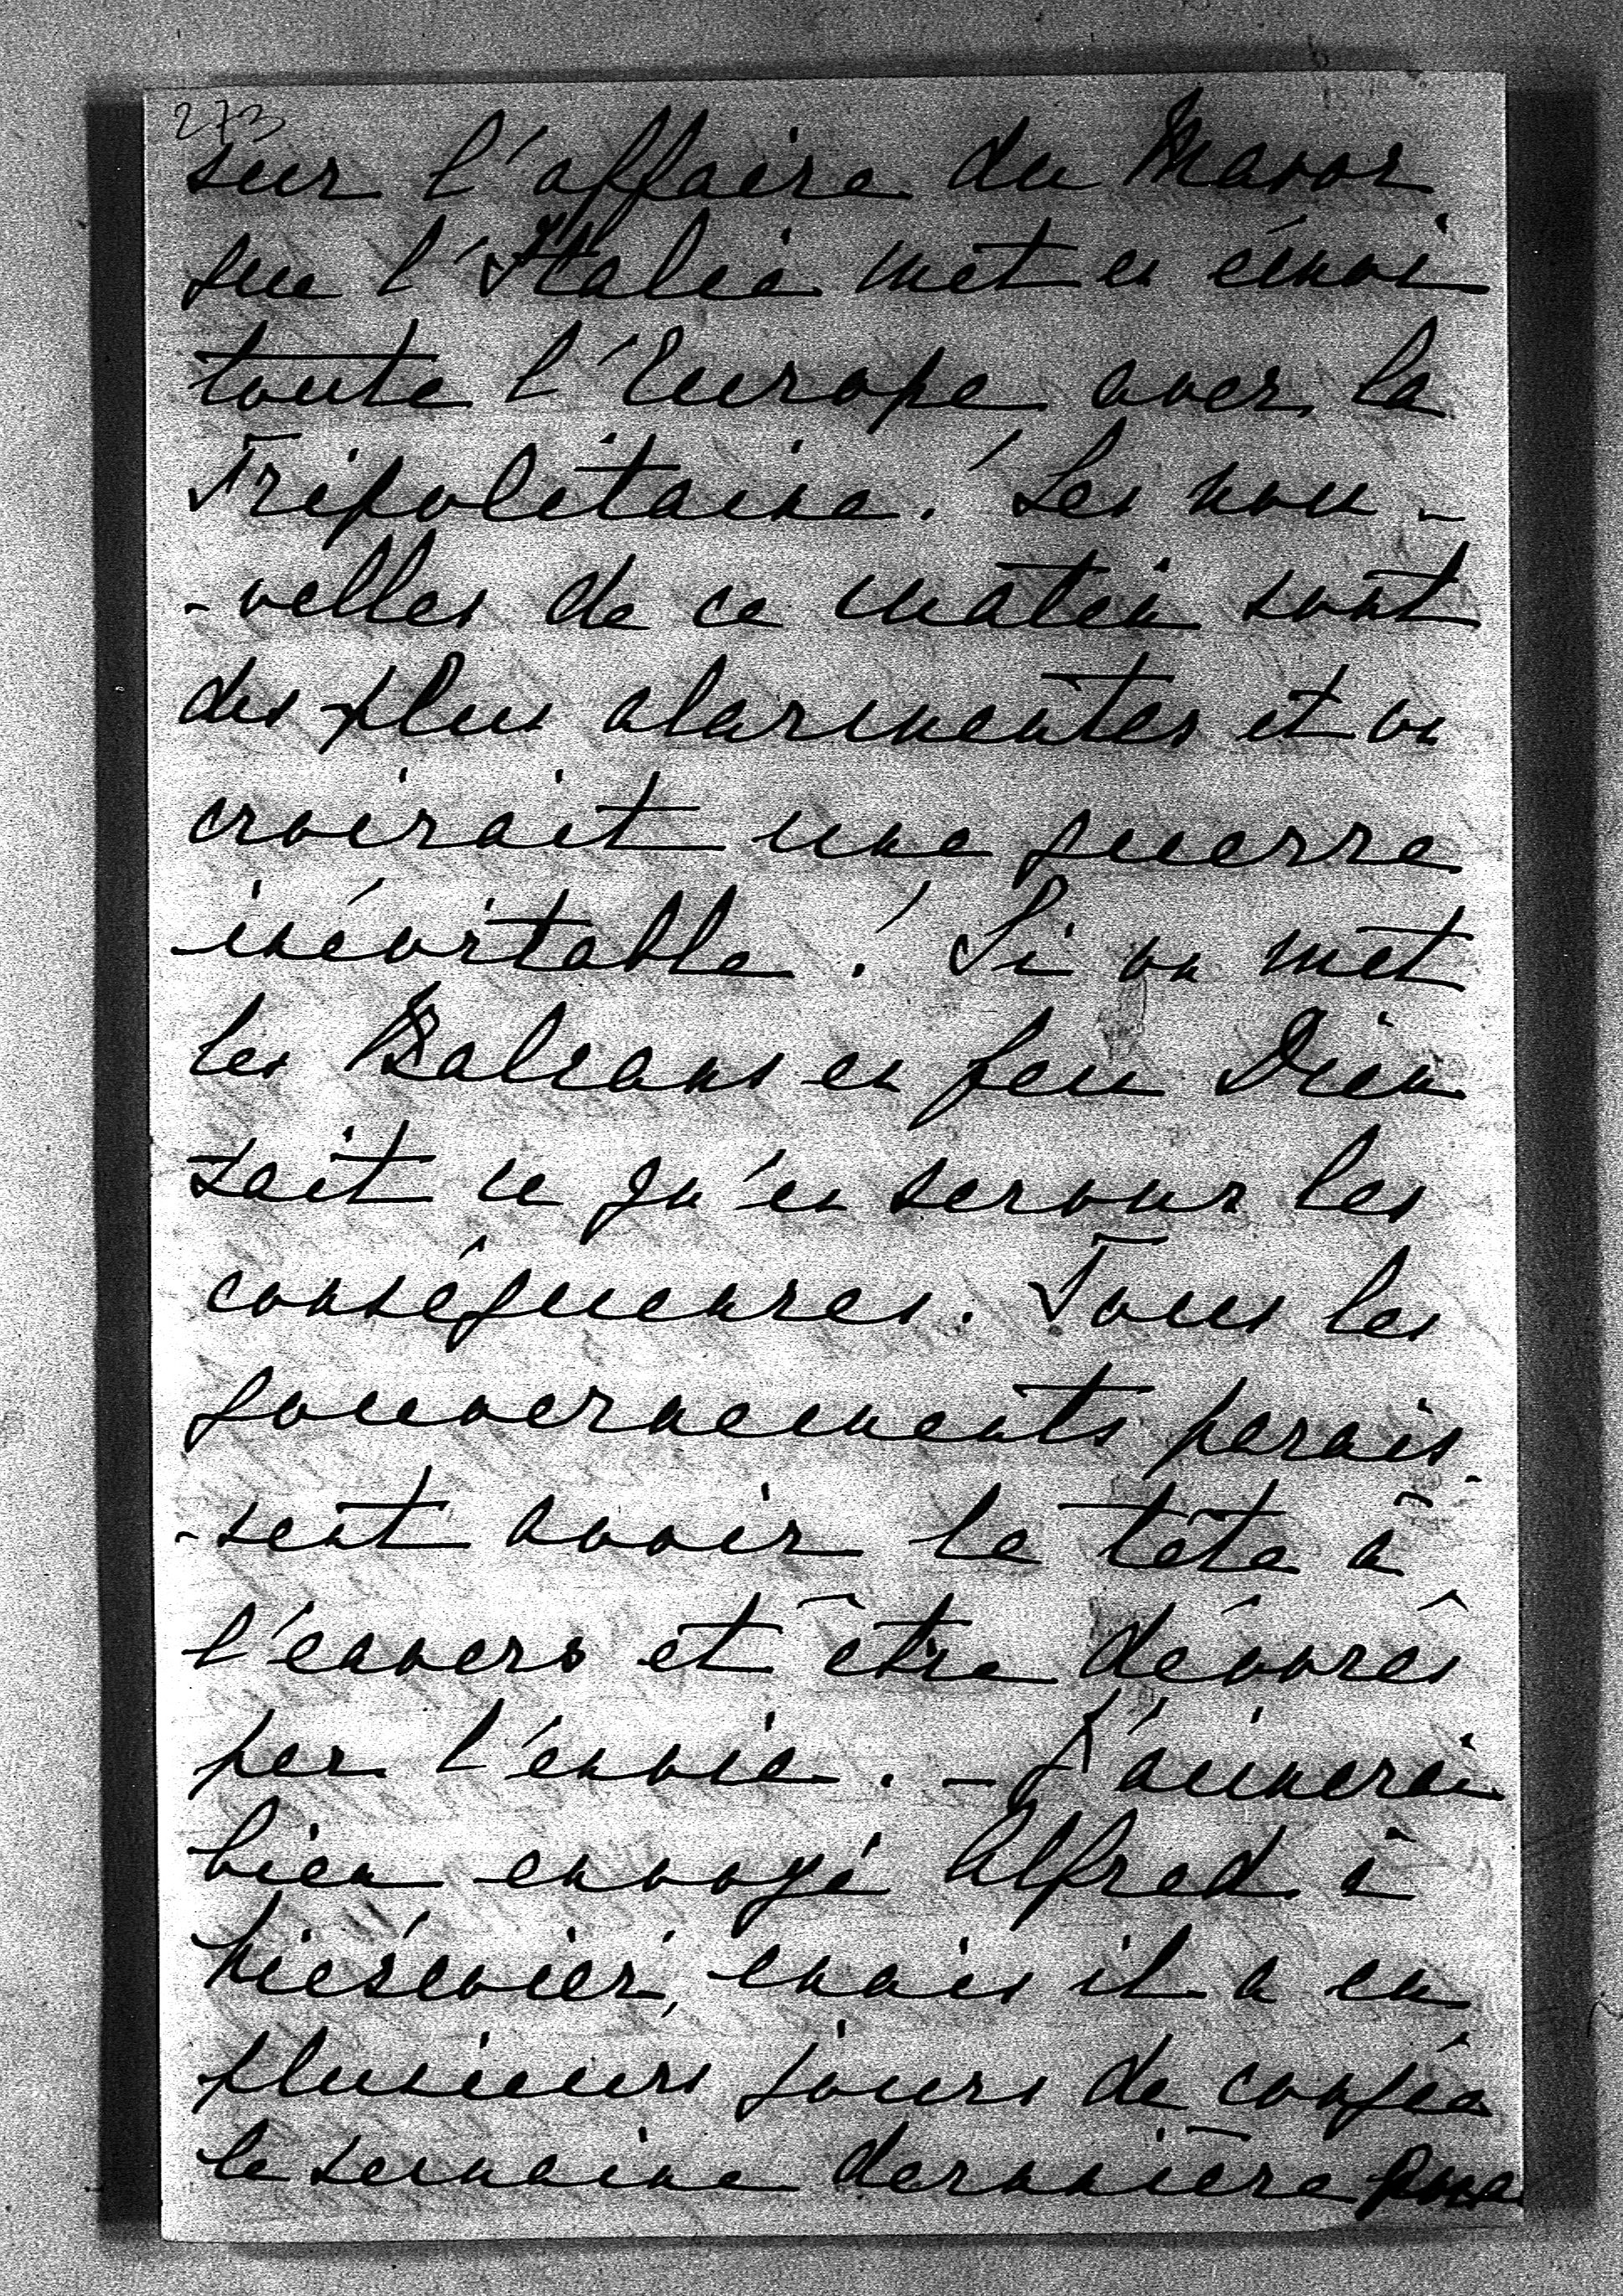 273
sur l'affaire du Maroc
que l'Italie met en émoi
toute l'Europe avec la
Tripolitaine! Les nou-
-velles de ce matin sont
des plus alarmentes et on
croirait une guerre
inévitable! Si on met
les Balcans en feu Dieu
sait ce qu'en seront les
conséquences. Tous les
gouvernements parais-
-sent avoir la tête à
l'envers et être dévorés
par l'envie. - J'aimerai
bien envoyé Alfred à
mais il a eu
plusieurs jours de congés
la semaine dernière pour